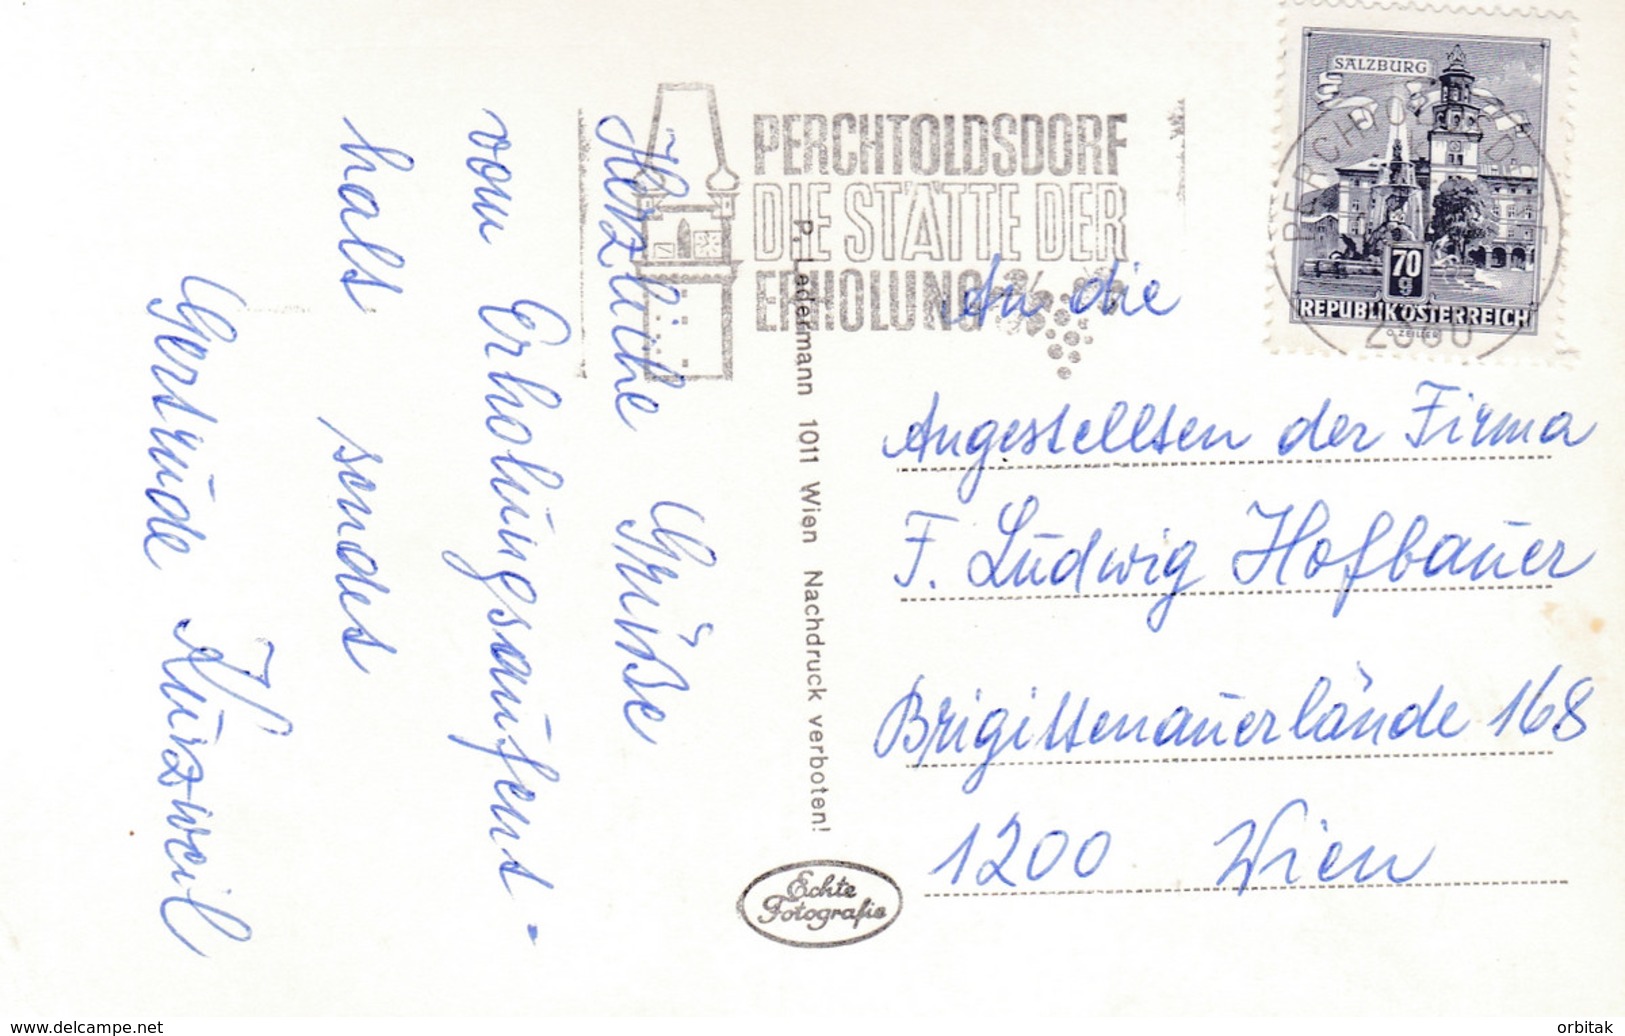 Herzliche Grüße
vom Erholungsaufent-
halt sendet
Gertrude Kurzweil
PERCHTOLDSDORF
DIE STÄTTE DER
ERHOLUNG
SALZBURG
70
g
REPUBLIK ÖSTERREICH
O. ZEILLER
P. Ledermann 1011 Wien Nachdruck verboten!
Echte
Fotografie
An die
Angestellten der Firma
F. Ludwig Hofbauer
Brigittenauerlände 168
1200 Wien
www.delcampe.net
orbitak